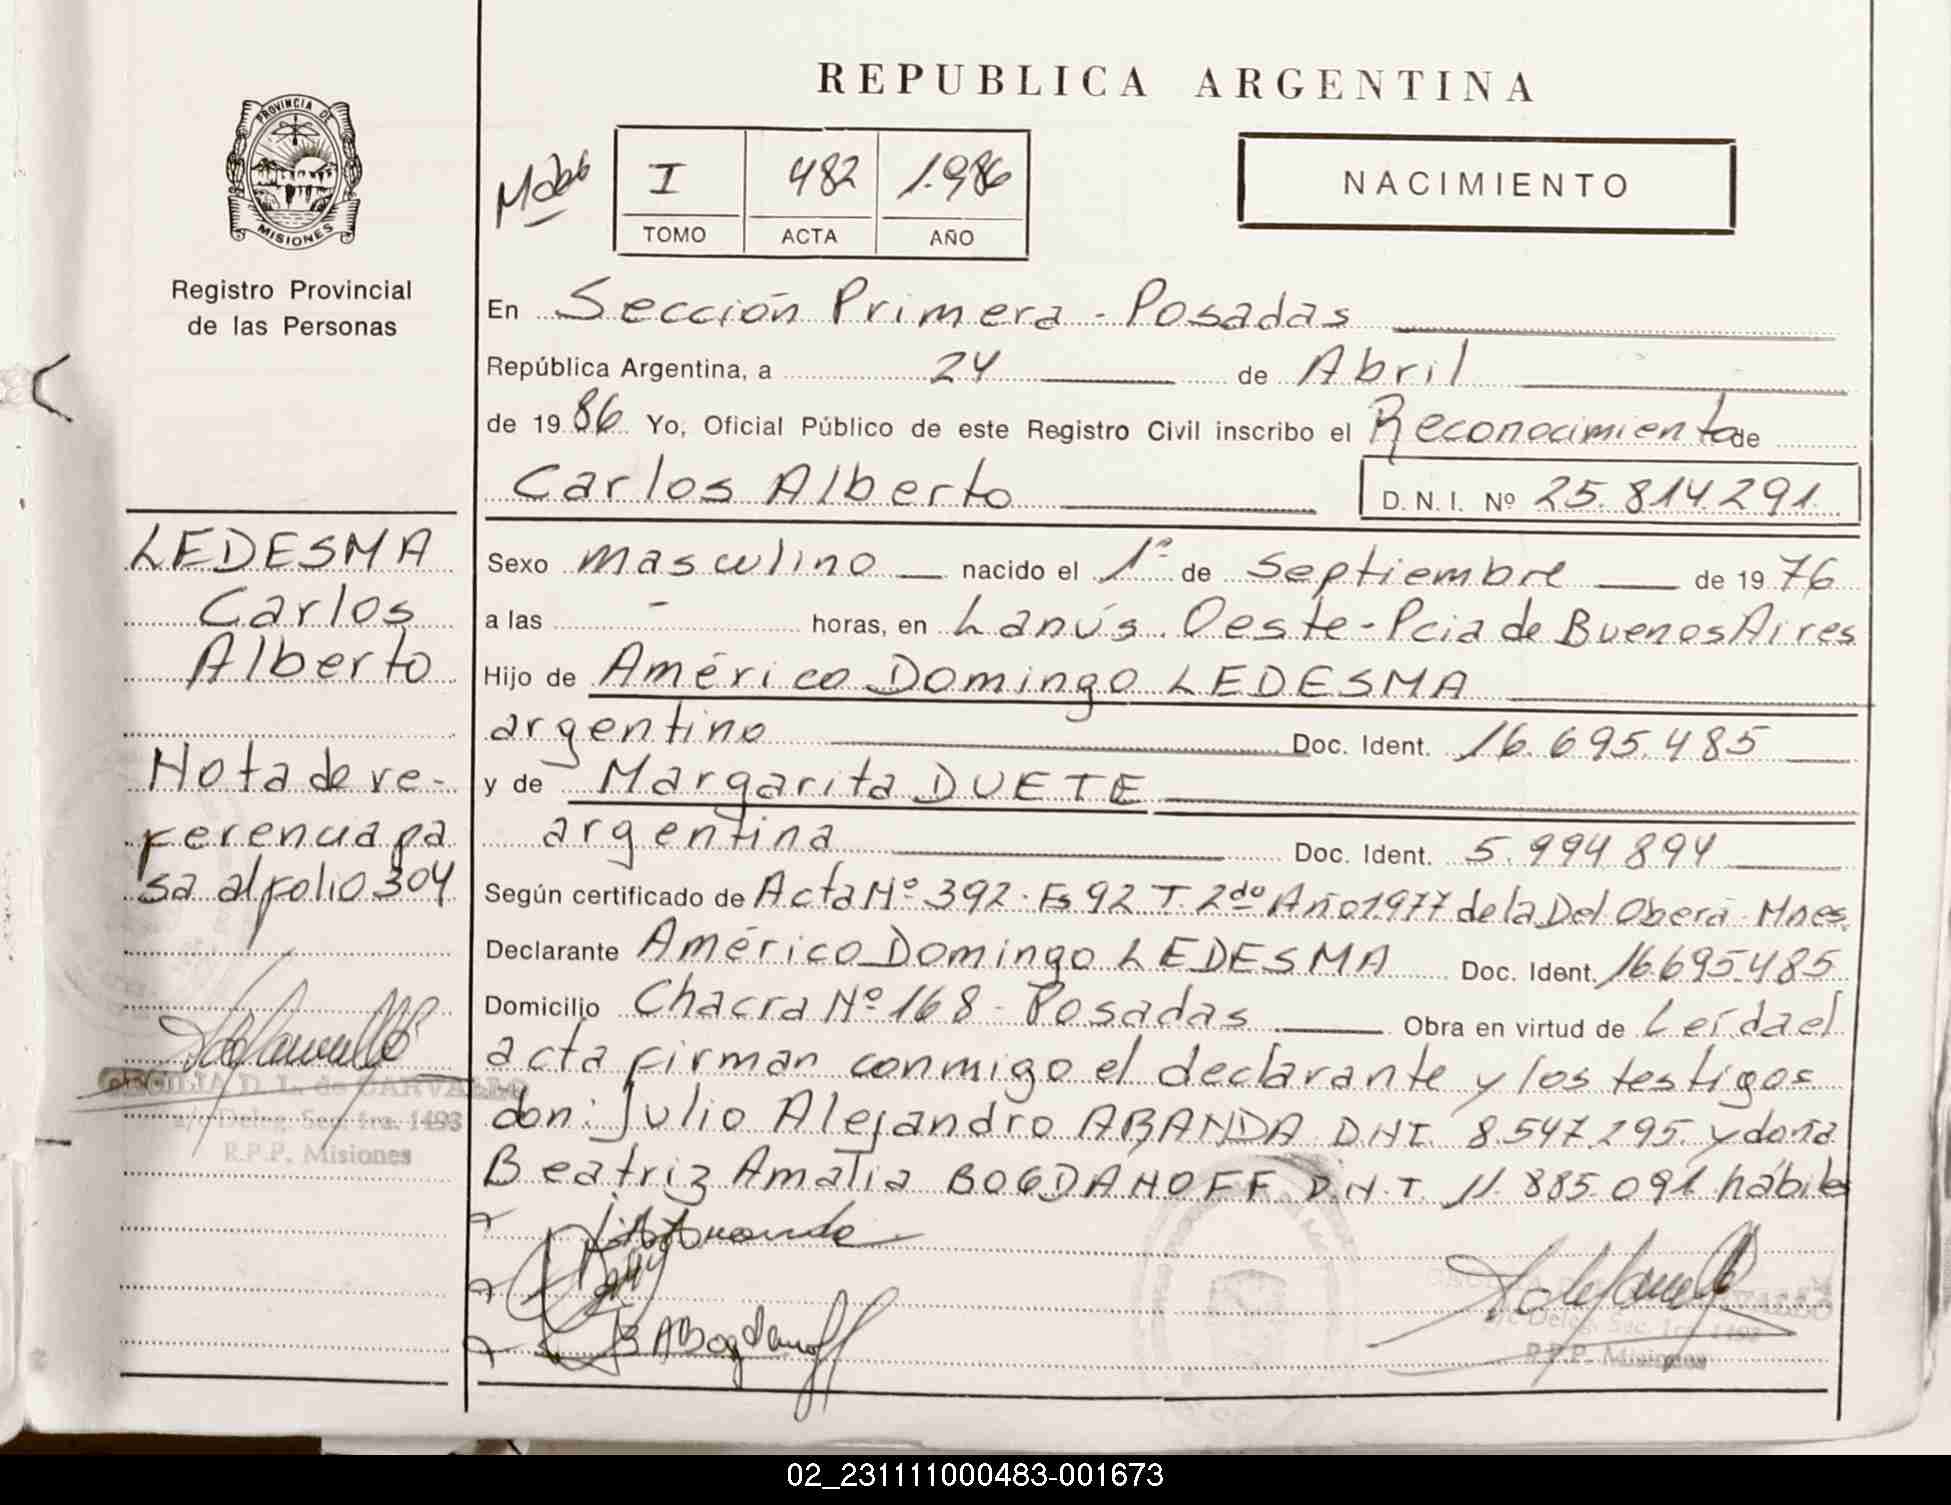 REPUBLICA ARGENTINA
PROVINCIA DE
MISIONES
Registro Provincial
de las Personas
I 482 1.986
TOMO ACTA AÑO
NACIMIENTO
En Sección Primera - Posadas
República Argentina, a 24 de Abril
de 1986 Yo, Oficial Público de este Registro Civil inscribo el Reconocimiento de
Carlos Alberto D.N.I. Nº 25.814.291.
Sexo masculino nacido el 1º de Septiembre de 1976
a las - horas, en Lanús Oeste - Pcia de Buenos Aires
Hijo de Américo Domingo LEDESMA
argentino Doc. Ident. 16.695.485
y de Margarita DUETE
argentina Doc. Ident. 5.994894
Según certificado de Acta Nº 392. Fs 92 T. 2do Año 1977 de la Del Oberá - Mnes.
Declarante Américo Domingo LEDESMA Doc. Ident. 16695485
Domicilio Chacra Nº 168 - Posadas Obra en virtud de Leída el
acta firman conmigo el declarante y los testigos
don: Julio Alejandro ARANDA D.N.I. 8.547.295. y doña
Beatriz Amalia BOGDANOFF D.N.I. 11.885.091 hábiles
B A Bogdanoff
R.P.P. Misiones
LEDESMA
Carlos
Alberto
Nota de re-
ferencia pa
sa al folio 304
CECILIA D. L. de CARVALLO
a/c Deleg. Sec. 1ra. 1493
R.P.P. Misiones
02_231111000483-001673